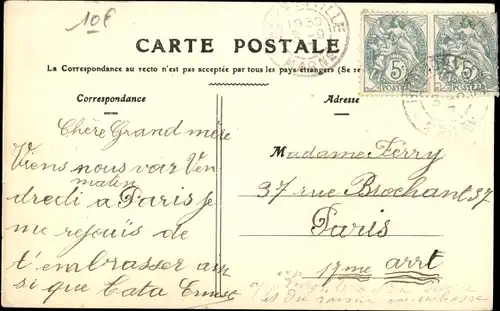 10€
CARTE POSTALE
La Correspondance au recto n'est pas acceptée par tous les pays étrangers (Se re
Correspondance
Adresse
5c
5c
POSTES
POSTES
MARNE
Chère Grand mère
Viens nous voir Ven
matin
dredi a Paris je
me rejouis de
t'embrasser ain
si que Tata Ernest
Madame Ferry
37 rue Brochant 37
Paris
17me arrt